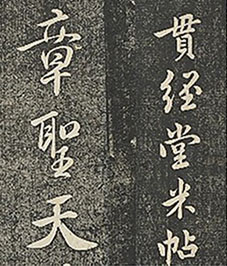 貫經堂米帖
章聖天